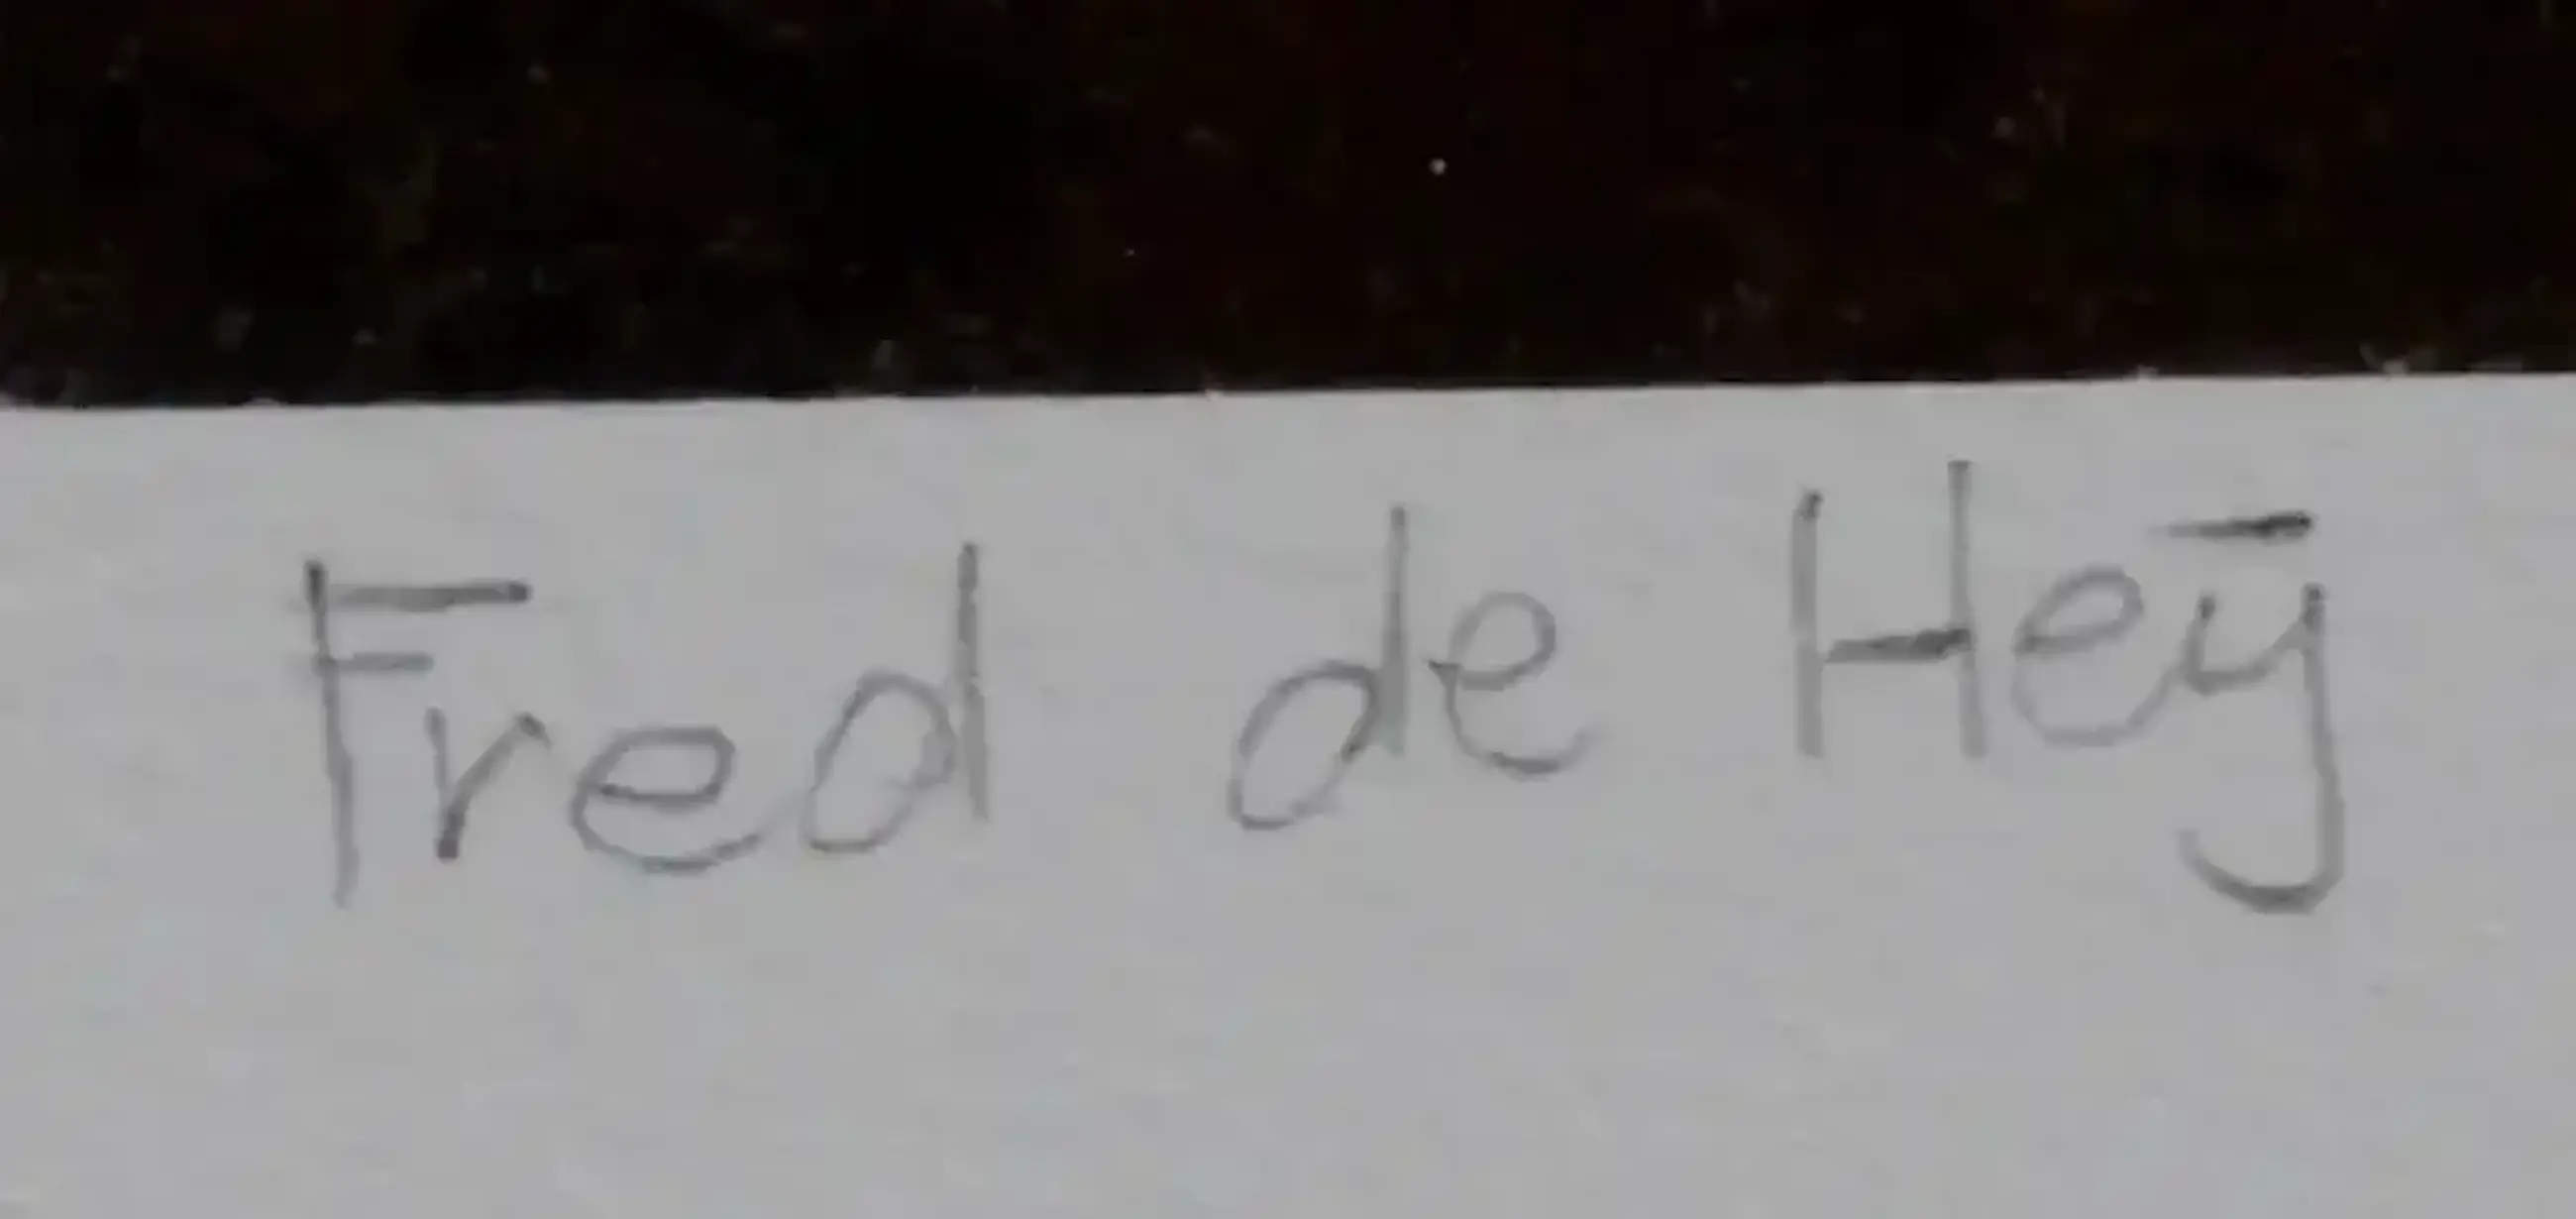 Fred de Heȳ